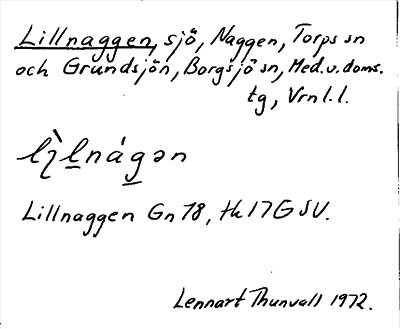 Lillnaggen, sjö, Naggen, Torps sn
och Grundsjön, Borgsjö sn, Med. v. doms.
tg, Vrnl. l.
lìl̠nág̠ən
Lillnaggen Gn 78, tk 17G SV.
Lennart Thunvall 1972.